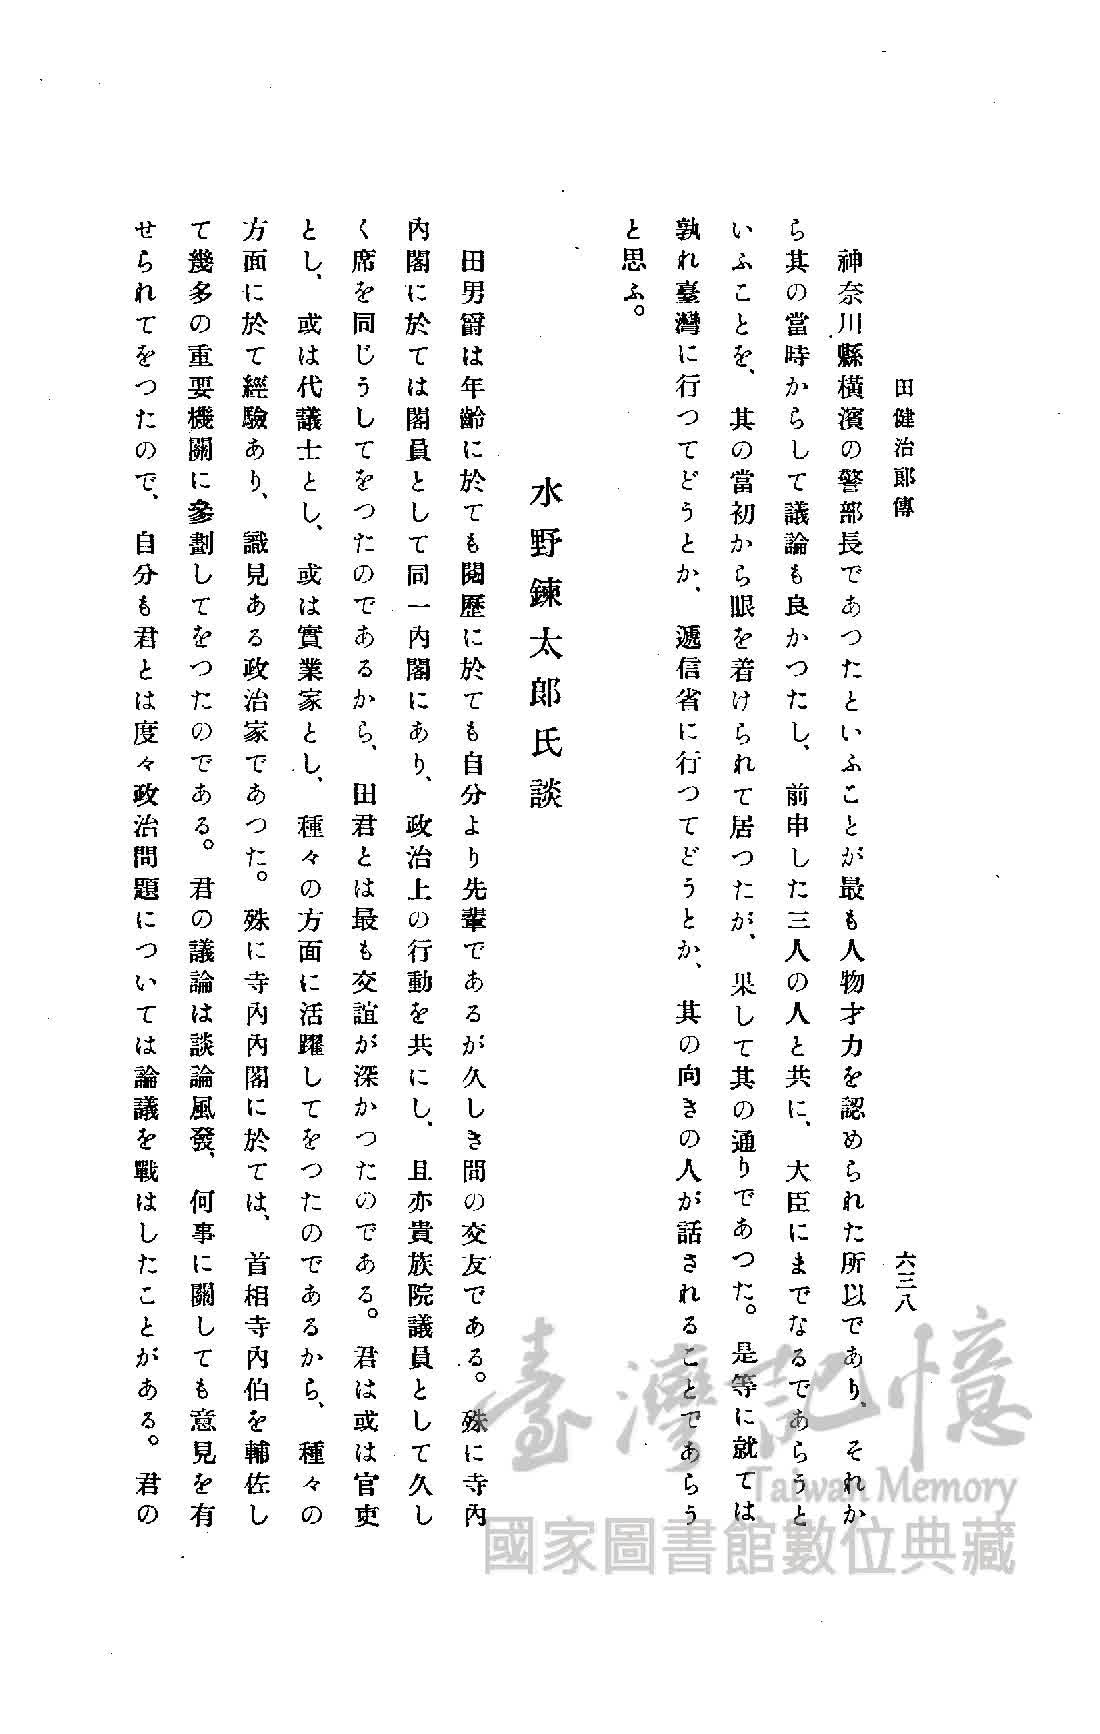 田健治郎傳
六三八
神奈川縣橫濱の警部長であつたといふことが最も人物才力を認められた所以であり、それか
ら其の當時からして議論も良かつたし、前申した三人の人と共に、大臣にまでなるであらうと
いふことを、其の當初から眼を着けられて居つたが、果して其の通りであつた。是等に就ては
孰れ臺灣に行つてどうとか、遞信省に行つてどうとか、其の向きの人が話されることであらう
と思ふ。
水野鍊太郎氏談
田男爵は年齡に於ても閱歷に於ても自分より先輩であるが久しき間の交友である。殊に寺內
內閣に於ては閣員として同一內閣にあり、政治上の行動を共にし、且亦貴族院議員として久し
く席を同じうしてをつたのであるから、田君とは最も交誼が深かつたのである。君は或は官吏
とし、或は代議士とし、或は實業家とし、種々の方面に活躍してをつたのであるから、種々の
方面に於て經驗あり、識見ある政治家であつた。殊に寺內內閣に於ては、首相寺內伯を輔佐し
て幾多の重要機關に參劃してをつたのである。君の議論は談論風發、何事に關しても意見を有
せられてをつたので、自分も君とは度々政治問題については論議を戰はしたことがある。君の
臺灣記憶
Taiwan Memory
國家圖書館數位典藏